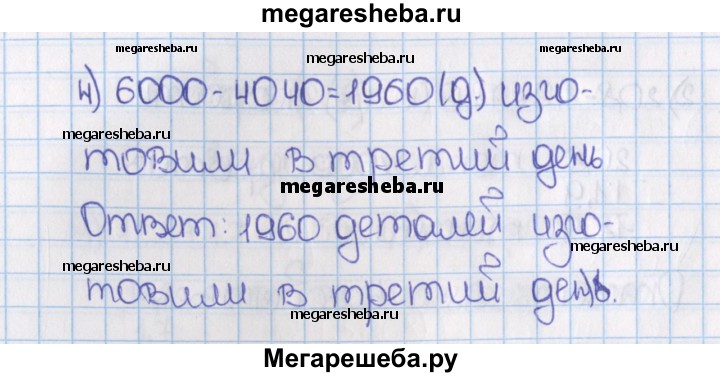 megaresheba.ru
megaresheba.ru
megaresheba.ru
4) 6000-4040=1960(д.) изго-
megaresheba.ru
megaresheba.ru
товили в третий день
megaresheba.ru
Ответ: 1960 деталей изго-
megaresheba.ru
megaresheba.ru
товили в третий день.
megaresheba.ru
megaresheba.ru
Мегарешеба.ру